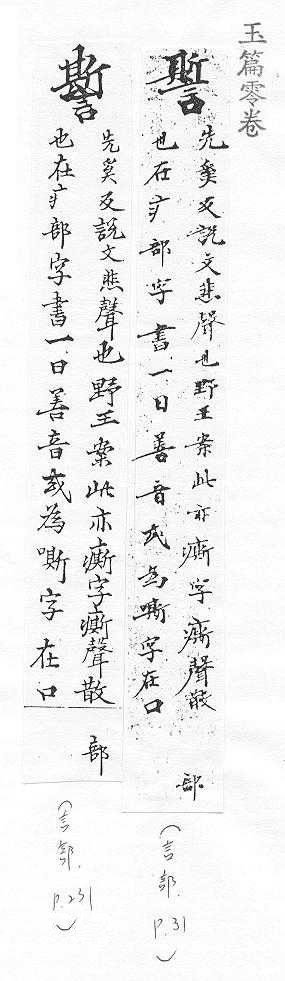 玉篇零卷
先奚反說文悲聲也野王案此亦㾷字㾷聲散
也在疒部字書一曰善音或為嘶字在口
部
(言部. p.31)
先奚反說文悲聲也野王案此亦㾷字㾷聲散
也在疒部字書一曰善音或為嘶字在口
部
(言部. p.231)